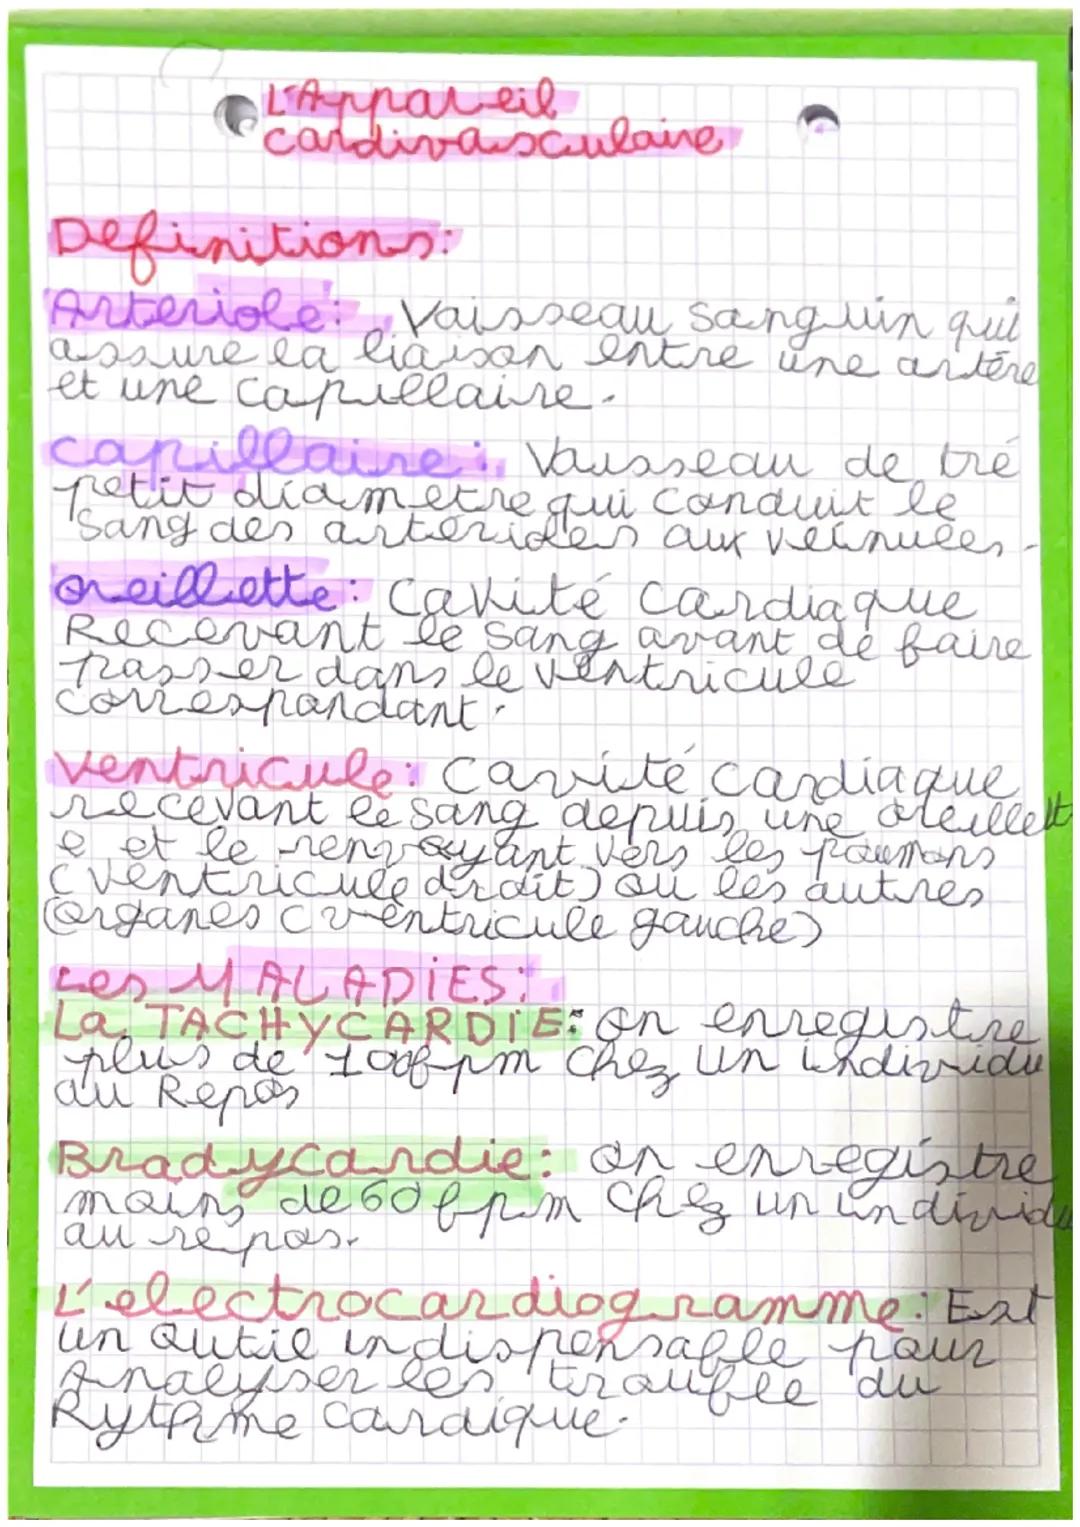 L'Appareil
cardivasculaire
Definitions:
Arteriole: Vaisseau Sanguin qui
assure la liaison entre une artère
et une capillaire.
capillaire: Vaisseau de tré
petit diametre qui conduit le
Sang des artérioles aux veinules.
oreillette: Cavité cardiaque
Recevant le sang avant de faire
passer dans le ventricule
correspondant.
Ventricule: Cavité cardiaque
recevant le sang depuis une oreillett
e et le renvoyant vers les poumons
(ventricule droit) ou les autres
(organes (ventricule gauche)
Les MALADIES:
La TACHYCARDIE: on enregistre
plus de 100bpm chez un individu
au Repos
Bradycardie: on enregistre
moins de 60 bpm chez un individu
au repos.
L'electrocardiogramme: Est
un outil indispensable pour
Analyser les trouble du
Rythme cardique.